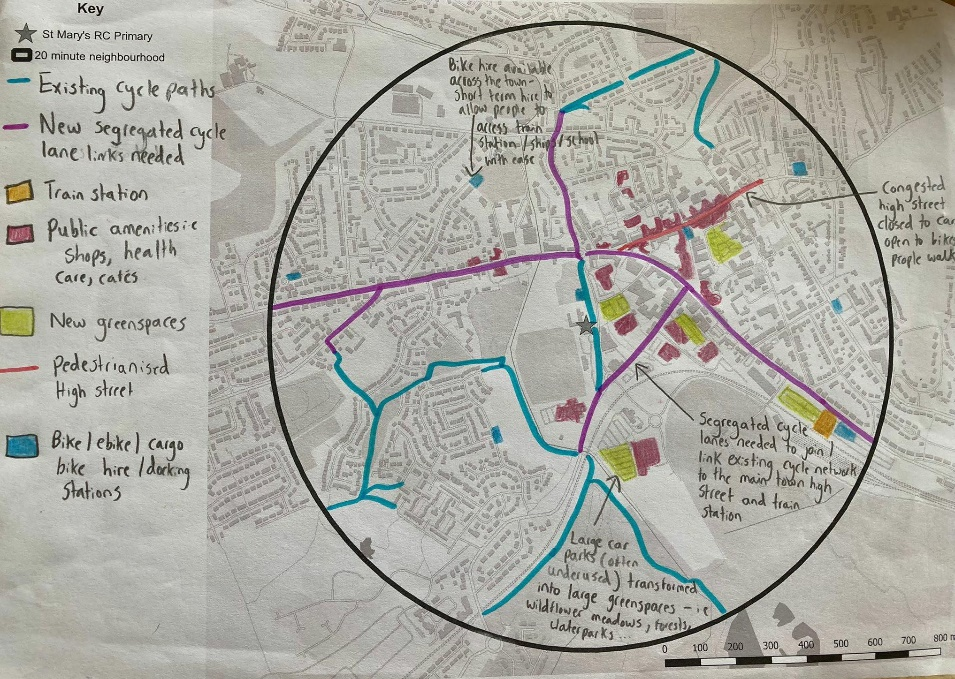 Key
St Mary's RC Primary
20 minute neighbourhood
Existing cycle paths
New segregated cycle
lane links needed
Train station
Public amenities i.e
shops, health
care, cafes
New greenspaces
Pedestrianised
High street
Bike/ebike/cargo
bike hire/docking
stations
Bike hire available
across the town -
short term hire to
allow people to
access train
station/shops/school
with ease
Congested
high street
closed to car
open to bikes
people walk
Segregated cycle
lanes needed to join/
link existing cycle network
to the main town high
street and train
station
Large car
parks (often
underused) transformed
into large greenspaces - i.e
wildflower meadows, forests,
waterparks...
0 100 200 300 400 500 600 700 800 m